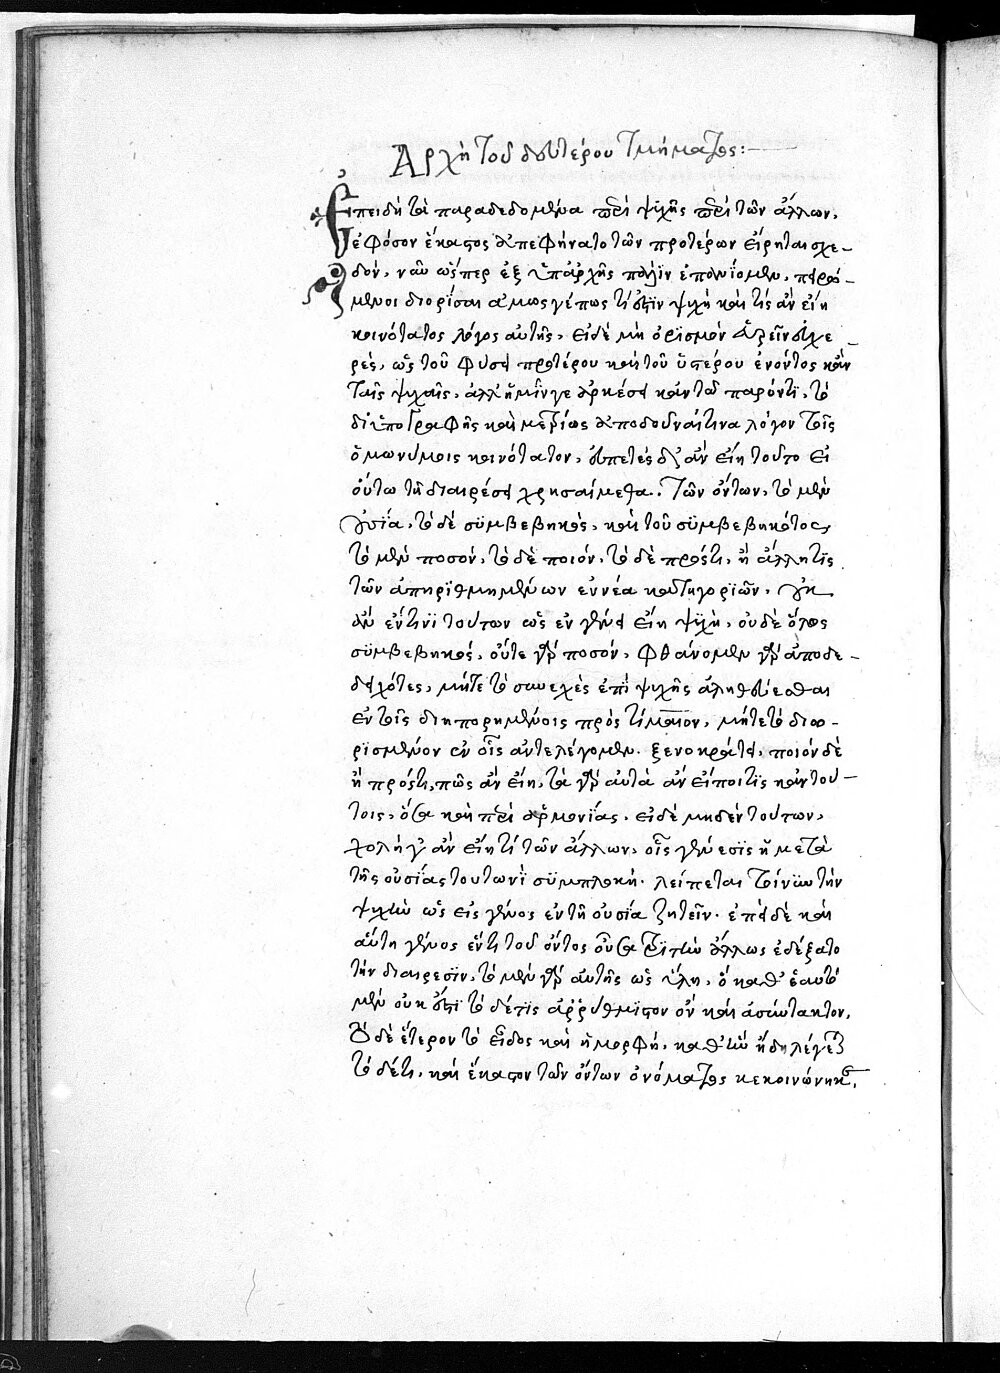 Ἀρχὴ τοῦ δευτέρου τμήματος:
Ἐπειδὴ τὰ παραδεδομένα περὶ ψυχῆς περὶ τῶν ἄλλων,
ἐφόσον ἕκαστος ἀπεφήνατο τῶν προτέρων εἴρηται σχε-
δόν, νῦν ὥσπερ ἐξ ὑπαρχῆς πάλιν ἐπανίομεν, πειρώ-
μενοι διορίσαι ἀμωσγέπως τί ἐστιν ψυχὴ καὶ τίς ἂν εἴη
κοινότατος λόγος αὐτῆς, εἰ δὲ μὴ ὁρισμὸν
ρές, ὡς τοῦ φύσει προτέρου καὶ τοῦ ὑστέρου ἐνόντος κἀν
ταῖς ψυχαῖς, ἀλλ' ἡμῖν γε ἀρκέσει κἀν τῷ παρόντι, τὸ
δι' ὑπογραφῆς καὶ μετρίως ἀποδοῦναί τινα λόγον τοῖς
ὁμωνύμοις κοινότατον, εὐπετὲς δ' ἂν εἴη τοῦτο εἰ
οὕτω τῇ διαιρέσει χρησαίμεθα. Τῶν ὄντων, τὸ μὲν
οὐσία, τὸ δὲ συμβεβηκός, καὶ τοῦ συμβεβηκότος
τὸ μὲν ποσόν, τὸ δὲ ποιόν, τὸ δὲ πρός τι, ἢ ἄλλη τις
τῶν ἀπηριθμημένων ἐννέα κατηγοριῶν, οὐκ
ἂν ἔν τινι τούτων ὡς ἐν γένει εἴη ψυχὴ, οὐδὲ ὅλως
συμβεβηκός, οὔτε γὰρ ποσόν, φθάνομεν γὰρ ἀποδε-
δειχότες, μήτε τὸ συνεχὲς ἐπὶ ψυχῆς ἀληθεύεσθαι
ἐν τοῖς διηπορημένοις πρὸς τίμαιον, μήτε τὸ διω-
ρισμένον ἐν οἷς ἀντελέγομεν ξενοκράτει, ποιὸν δὲ
ἢ πρός τι, πῶς ἂν εἴη, τὰ γὰρ αὐτὰ ἂν εἴποι τις κἀν τού-
τοις, ὅσα καὶ περὶ ἁρμονίας, εἰ δὲ μηδὲν τούτων,
σχολῇ γ' ἂν εἴη τὶ τῶν ἄλλων, οἷς γένεσις ἡ μετὰ
τῆς οὐσίας τουτωνὶ συμπλοκή. λείπεται τοίνυν τὴν
ψυχὴν ὡς εἰς γένος ἐν τῇ οὐσία ζητεῖν. ἐπεὶ δὲ καὶ
αὕτη γένος ἕν τι τοῦ ὄντος οὖσα τριττὴν ἄλλως ἐδέξατο
τὴν διαίρεσιν, τὸ μὲν γὰρ αὐτῆς ὡς ὕλη, ὃ καθ' ἑαυτὸ
μὲν οὐκ ἔστι τὸ δέ τις ἀρρύθμιστον ὂν καὶ ἀσύντακτον,
τὸ δὲ ἕτερον τὸ εἶδος καὶ ἡ μορφή, καθ' ἣν ἤδη λέγεται
τὸ δέ τι, καὶ ἕκαστον τῶν ὄντων ὀνόματος κεκοινώνηκεν,